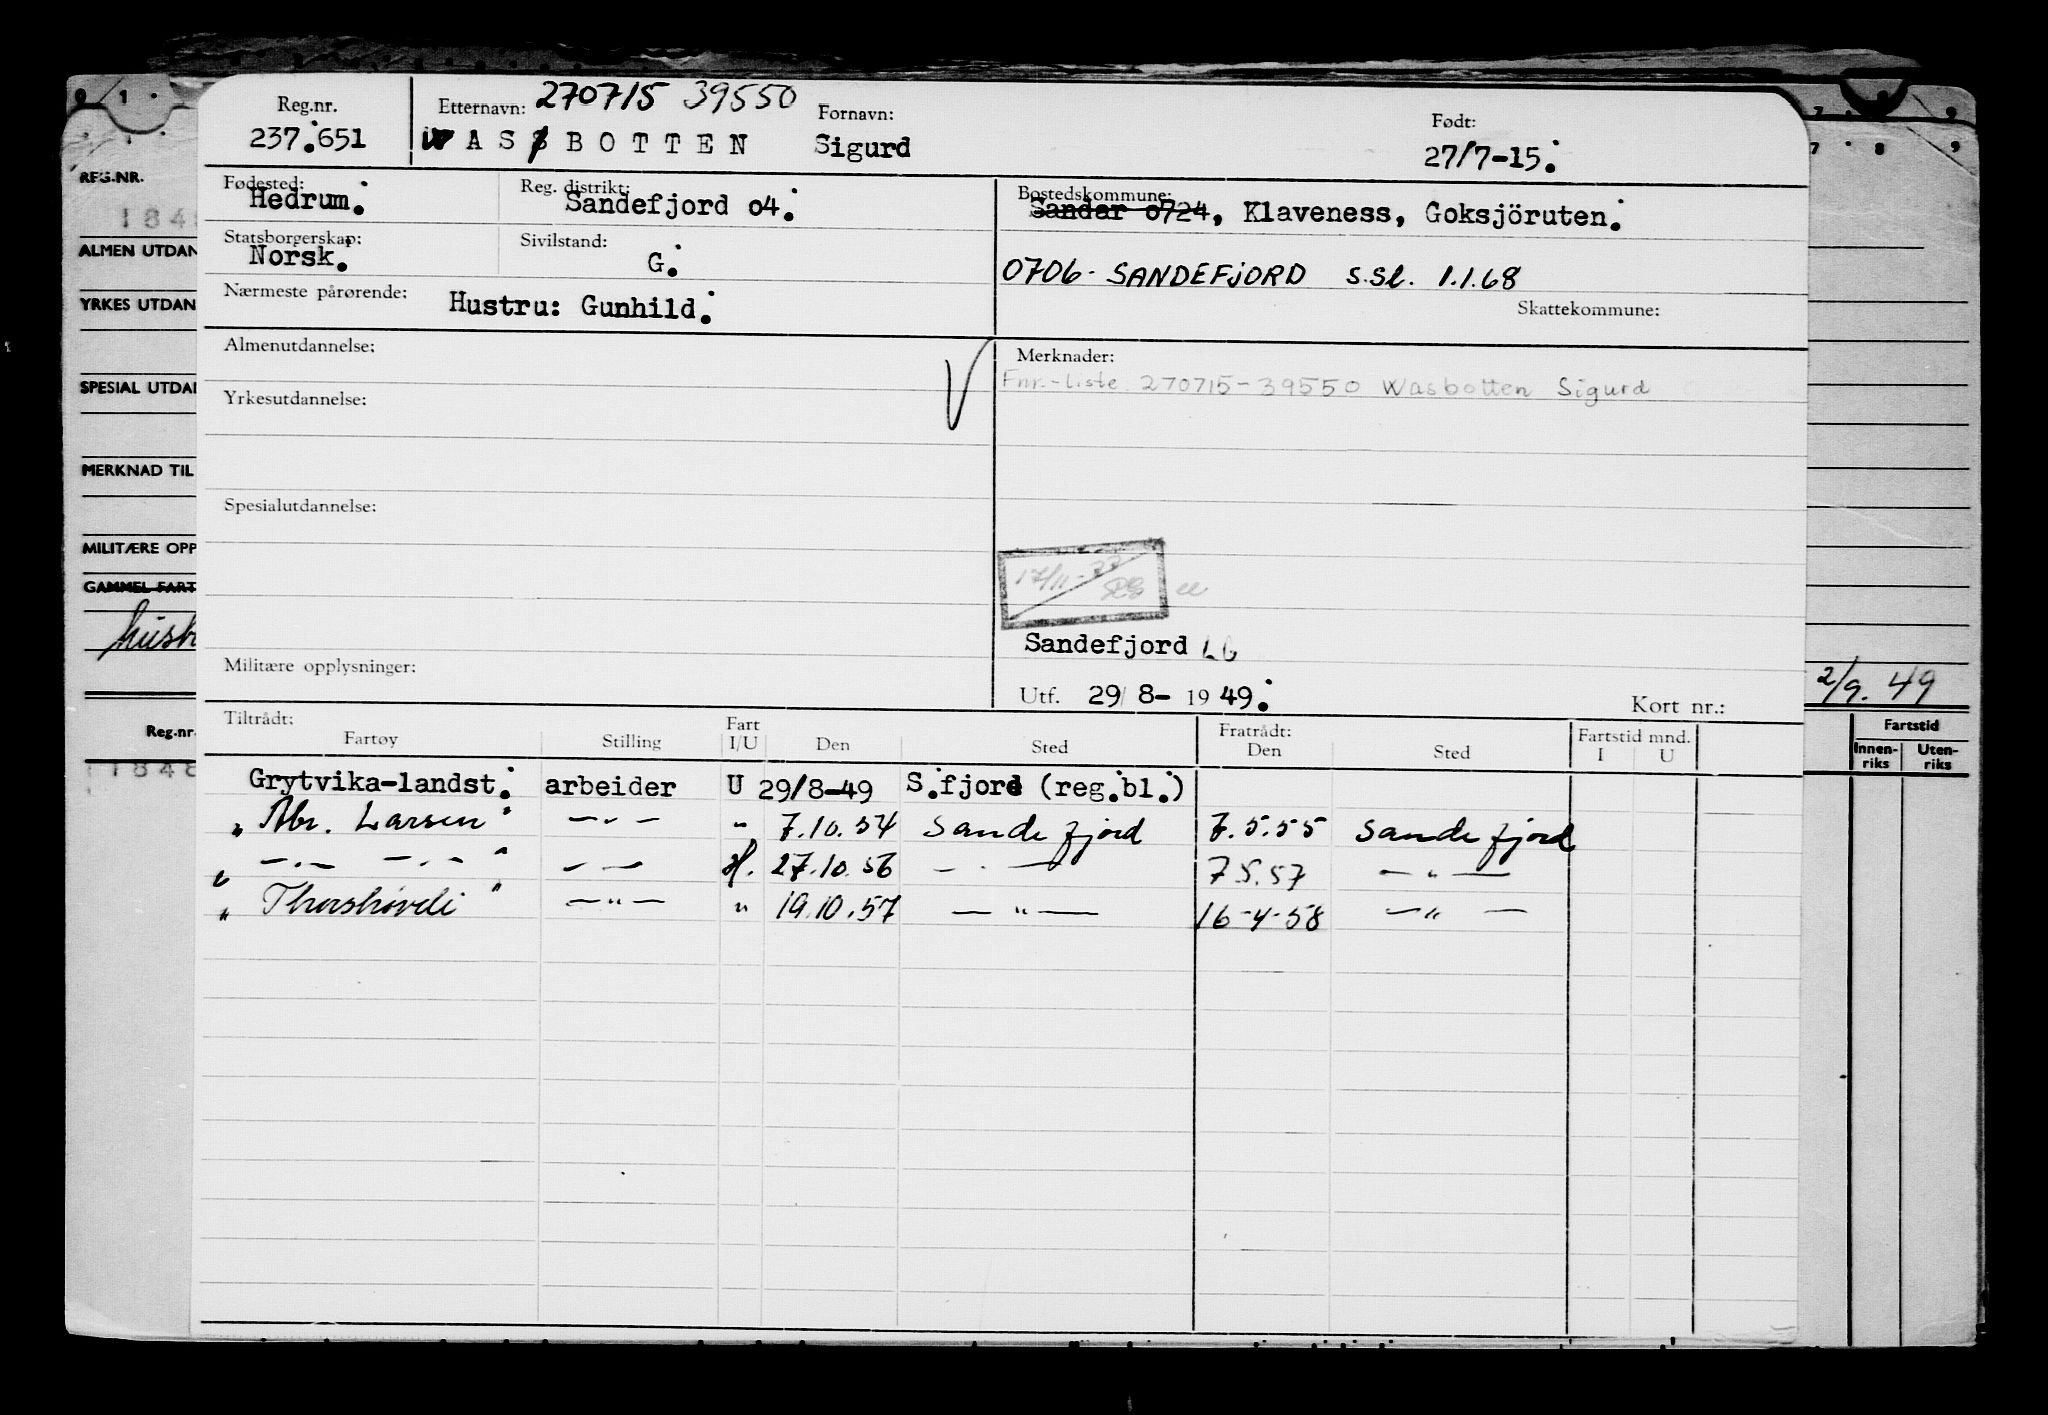 0 1 7 8 9
Reg.nr.
237.651
Etternavn: 270715 39550
WASBOTTEN
Fornavn:
Sigurd
Født:
27/7-15.
Fødested:
Hedrum.
Reg. distrikt:
Sandefjord o4.
Bostedskommune:
Sandar o724, Klaveness, Goksjöruten.
Statsborgerskap:
Norsk.
Sivilstand:
G.
0706- SANDEFJORD S.Sl. 1.1.68
Nærmeste pårørende:
Hustru: Gunhild.
Skattekommune:
Almenutdannelse:
Yrkesutdannelse:
Spesialutdannelse:
Militære opplysninger:
Merknader:
Fnr.-liste 270715-39550 Wasbotten Sigurd
17/11-
Sandefjord
Utf. 29/ 8- 19 49.
Kort nr.:
Tiltrådt:
Fartøy Stilling Fart I/U Den Sted Fratrådt: Den Sted Fartstid mnd. I U
Grytvika-landst. arbeider U 29/8-49 S.fjord (reg.bl.)
" Abr. Larsen" —"— " 7.10.54 Sandefjord 7.5.55 Sandefjord
" —.— —.— " —"— H. 27.10.56 —.— 7.5.57 —"—
" Thorshövdi " —"— " 19.10.57 —"— 16-4-58 —"—
REG.NR.
184
ALMEN UTDAN
YRKES UTDAN
SPESIAL UTDA
MERKNAD TIL
MILITÆRE OPP
GAMMEL FART
Reg.nr.
1848
2/9. 49
Fartstid
Innen-riks Uten-riks